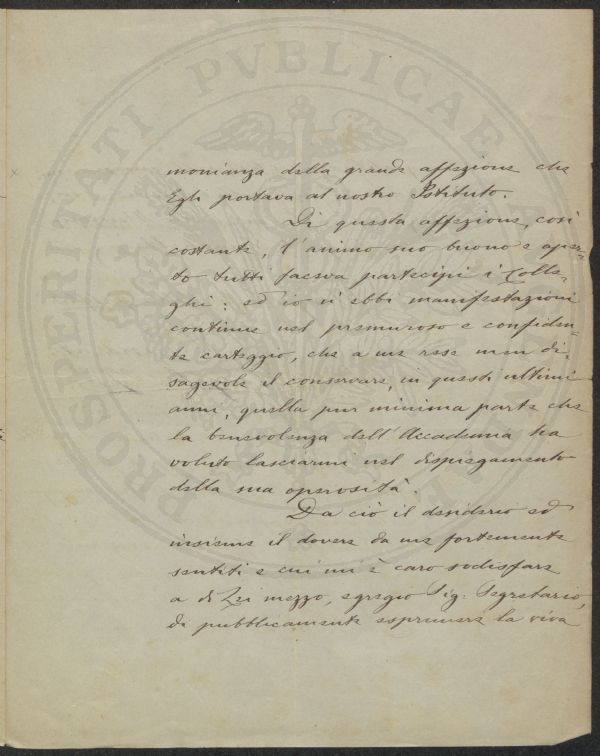 PROSPERITATI PVBLICAE
monianza della grande affezione che
Egli portava al nostro Istituto.
Di questa affezione, così
costante, l'animo suo buono e aper-
to tutti faceva partecipi i Colle-
ghi: ed io n'ebbi manifestazioni
continue nel premuroso e confiden-
te carteggio, che a me rese men di-
sagevole il conservare, in questi ultimi
anni, quella pur minima parte che
la benevolenza dell'Accademia ha
voluto lasciarmi nel dispiegamento
della sua operosità.
Da ciò il desiderio ed
insieme il dovere da me fortemente
sentiti e cui mi è caro sodisfare
a di Lei mezzo, egregio Sig. Segretario,
di pubblicamente esprimere la viva